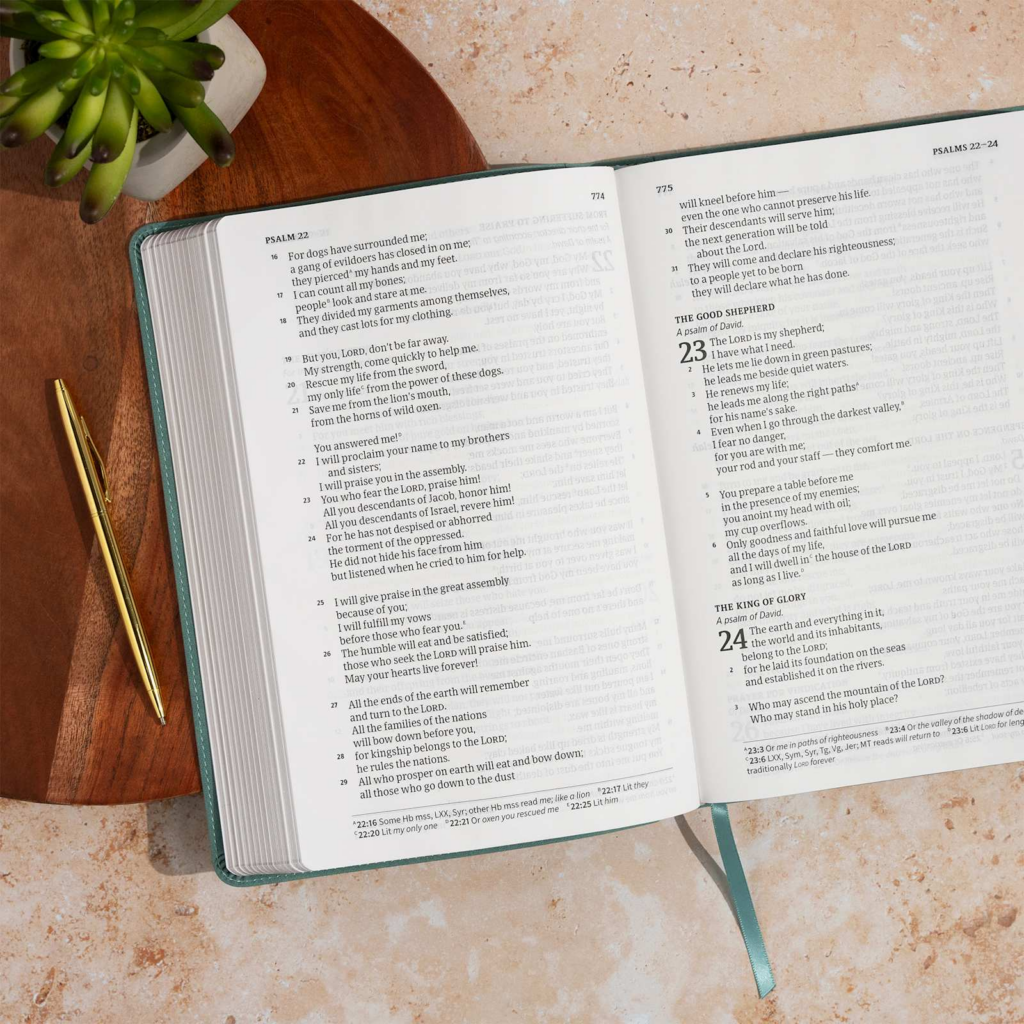 PSALM 22
774
16 For dogs have surrounded me;
a gang of evildoers has closed in on me;
they piercedᴬ my hands and my feet.
17 I can count all my bones;
peopleᴮ look and stare at me.
18 They divided my garments among themselves,
and they cast lots for my clothing.
19 But you, LORD, don't be far away.
My strength, come quickly to help me.
20 Rescue my life from the sword,
my only lifeᶜ from the power of these dogs.
21 Save me from the lion's mouth,
from the horns of wild oxen.
You answered me!ᴰ
22 I will proclaim your name to my brothers
and sisters;
I will praise you in the assembly.
23 You who fear the LORD, praise him!
All you descendants of Jacob, honor him!
All you descendants of Israel, revere him!
24 For he has not despised or abhorred
the torment of the oppressed.
He did not hide his face from him
but listened when he cried to him for help.
25 I will give praise in the great assembly
because of you;
I will fulfill my vows
before those who fear you.ᴱ
26 The humble will eat and be satisfied;
those who seek the LORD will praise him.
May your hearts live forever!
27 All the ends of the earth will remember
and turn to the LORD.
All the families of the nations
will bow down before you,
28 for kingship belongs to the LORD;
he rules the nations.
29 All who prosper on earth will eat and bow down;
all those who go down to the dust
ᴬ22:16 Some Hb mss, LXX, Syr; other Hb mss read me; like a lion ᴮ22:17 Lit they
ᶜ22:20 Lit my only one ᴰ22:21 Or oxen you rescued me ᴱ22:25 Lit him
775
PSALMS 22–24
will kneel before him —
even the one who cannot preserve his life.
30 Their descendants will serve him;
the next generation will be told
about the Lord.
31 They will come and declare his righteousness;
to a people yet to be born
they will declare what he has done.
THE GOOD SHEPHERD
A psalm of David.
23 The LORD is my shepherd;
I have what I need.
2 He lets me lie down in green pastures;
he leads me beside quiet waters.
3 He renews my life;
he leads me along the right pathsᴬ
for his name's sake.
4 Even when I go through the darkest valley,ᴮ
I fear no danger,
for you are with me;
your rod and your staff — they comfort me.
5 You prepare a table before me
in the presence of my enemies;
you anoint my head with oil;
my cup overflows.
6 Only goodness and faithful love will pursue me
all the days of my life,
and I will dwell inᶜ the house of the LORD
as long as I live.ᴰ
THE KING OF GLORY
A psalm of David.
24 The earth and everything in it,
the world and its inhabitants,
belong to the LORD;
2 for he laid its foundation on the seas
and established it on the rivers.
3 Who may ascend the mountain of the LORD?
Who may stand in his holy place?
ᴬ23:3 Or me in paths of righteousness ᴮ23:4 Or the valley of the shadow of de
ᶜ23:6 LXX, Sym, Syr, Tg, Vg, Jer; MT reads will return to ᴰ23:6 Lit LORD for leng
traditionally LORD forever